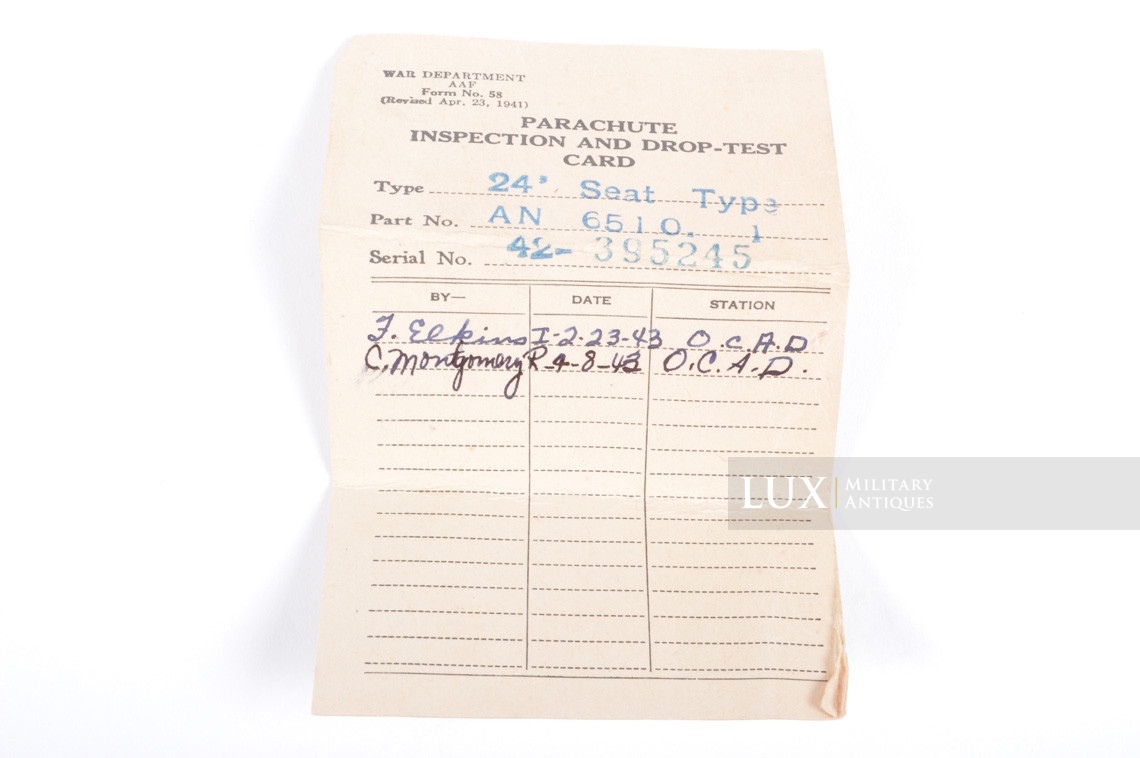 WAR DEPARTMENT
AAF
Form No. 58
(Revised Apr. 23, 1941)
PARACHUTE
INSPECTION AND DROP-TEST
CARD
Type 24' Seat Type
Part No. AN 6510. 1
Serial No. 42-395245
BY— DATE STATION
F. Elkins I-2-23-43 O.C.A.D
C. Montgomery R-4-8-43 O.C.A.D.
LUX MILITARY
ANTIQUES